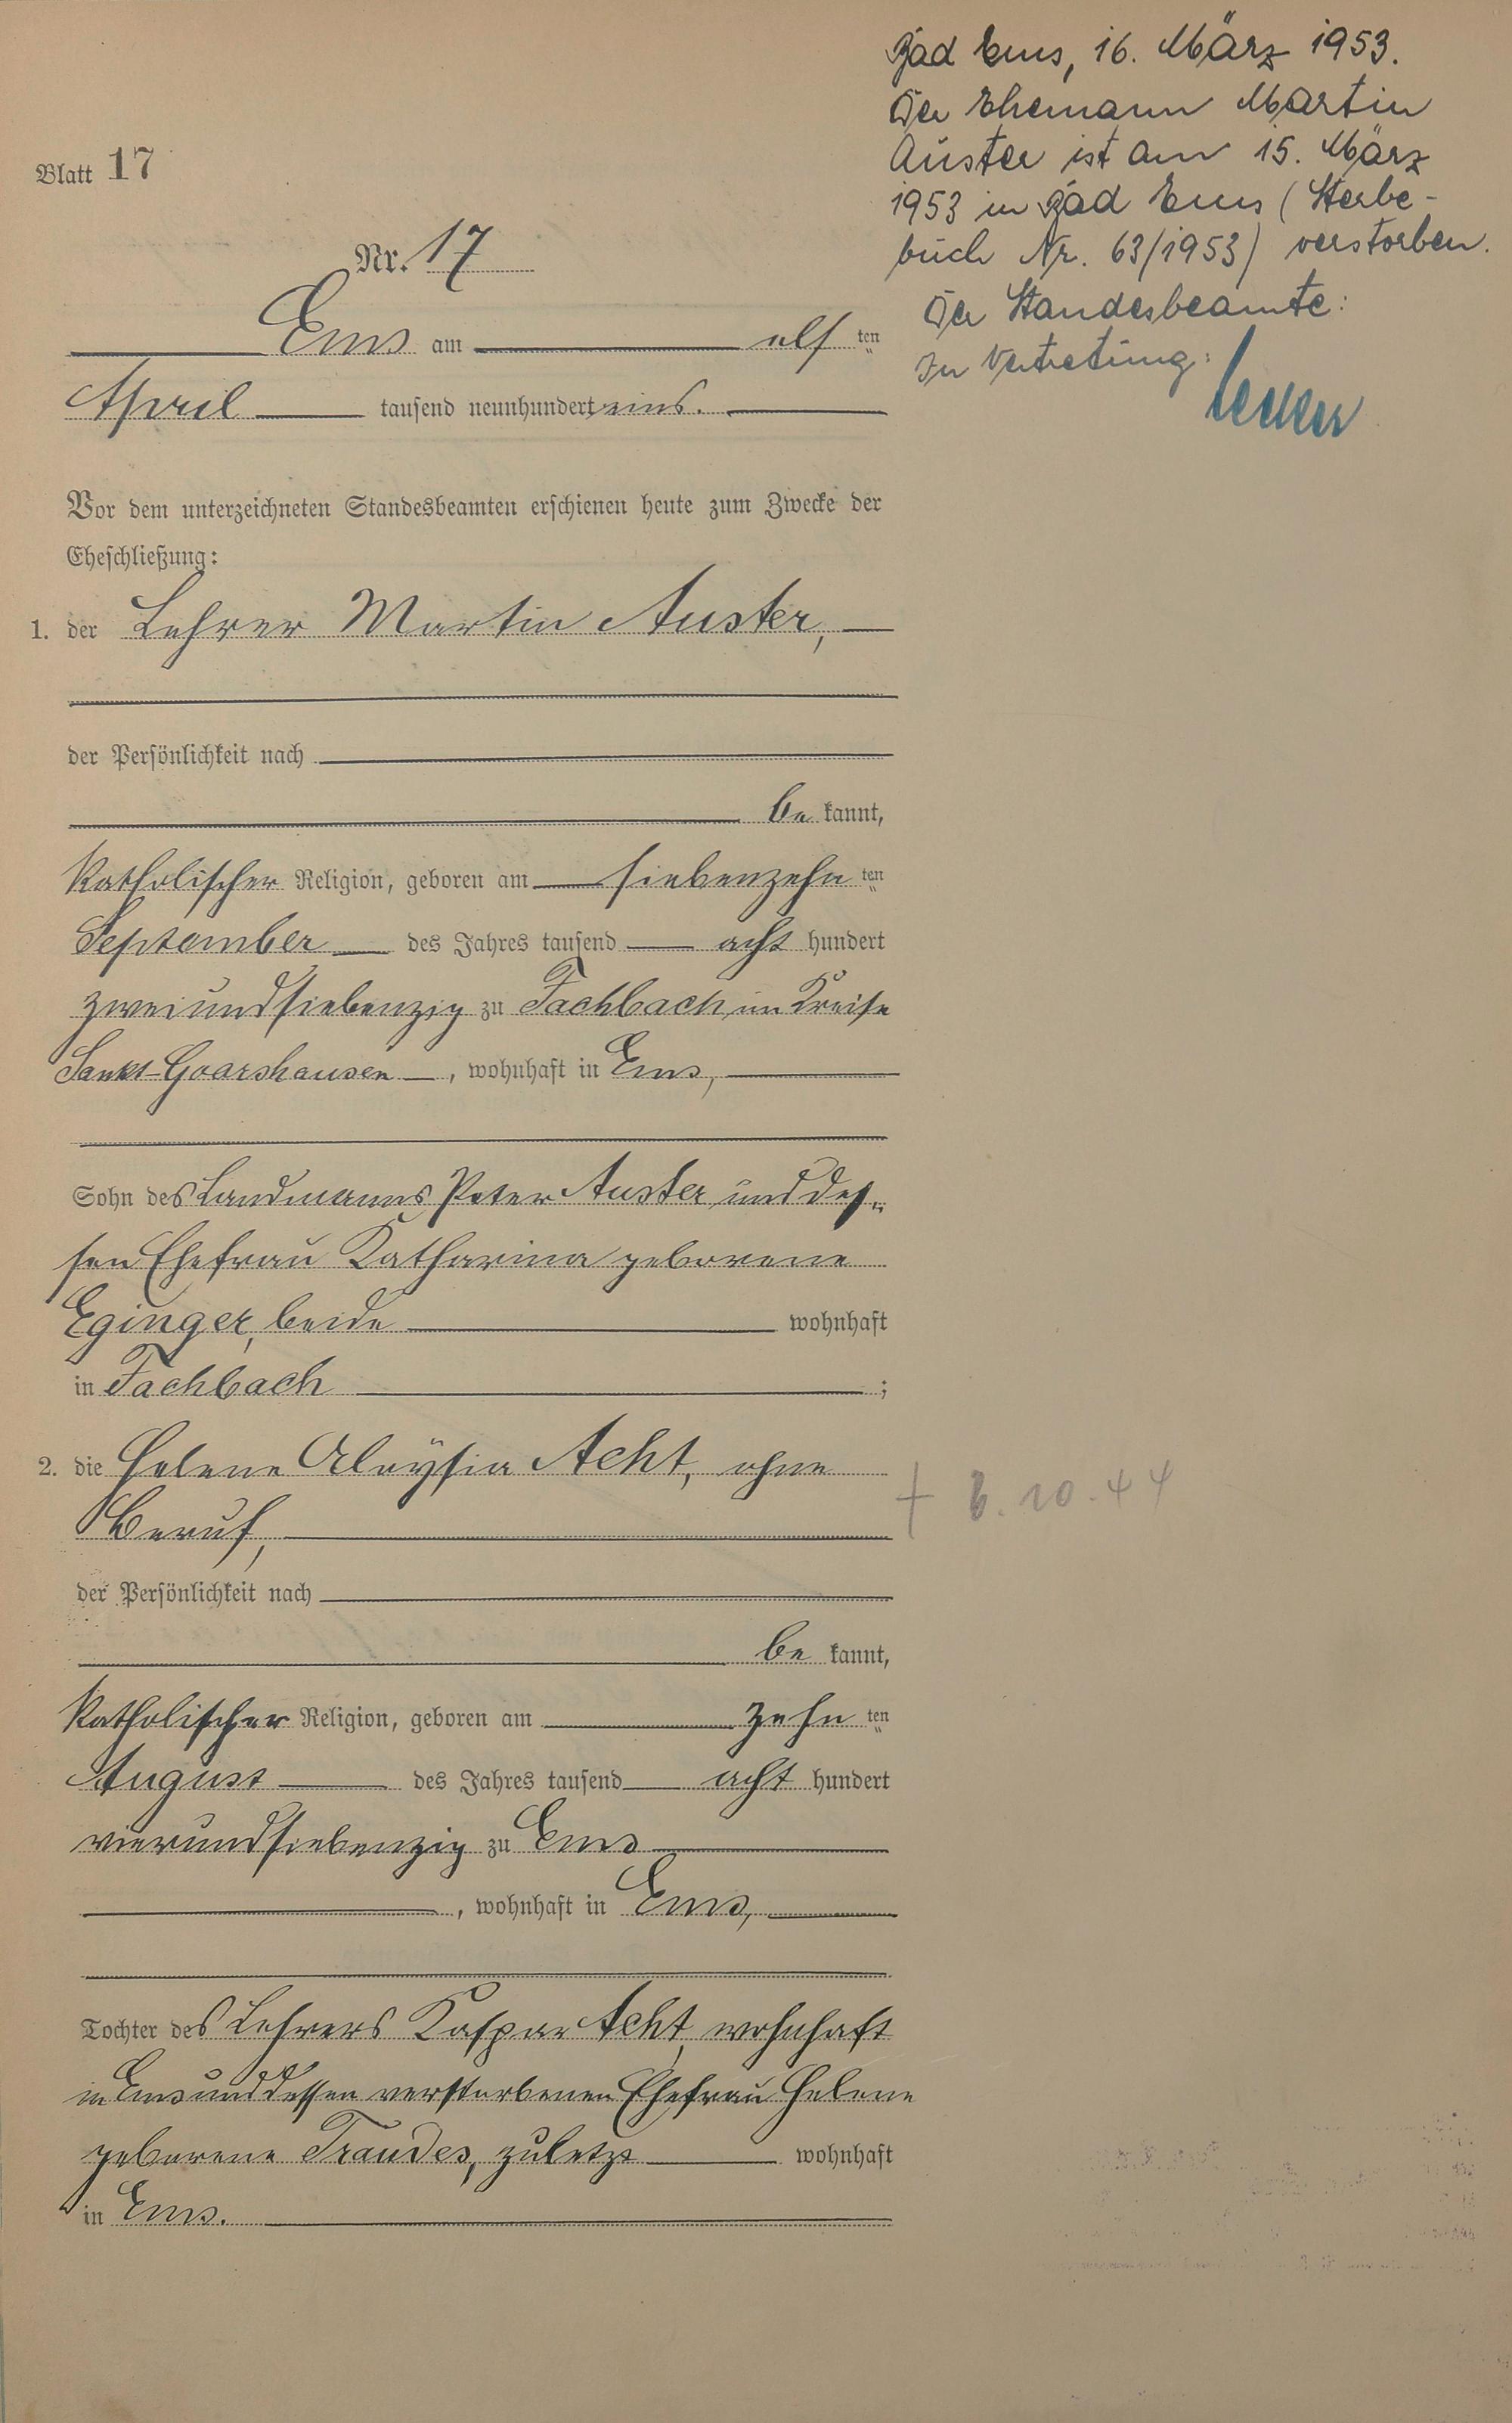 Blatt 17
Nr. 17
Ems am elften
April tausend neunhundert eins.
Vor dem unterzeichneten Standesbeamten erschienen heute zum Zwecke der
Eheschließung:
1. der Lehrer Martin Auster,
der Persönlichkeit nach
be kannt,
katholischer Religion, geboren am siebenzehn ten
September des Jahres tausend acht hundert
zweiundsiebenzig zu Fachbach im Kreise
Sankt-Goarshausen, wohnhaft in Ems,
Sohn des Landmanns Peter Auster und des-
sen Ehefrau Katharina geborene
Eginger, beide wohnhaft
in Fachbach ;
2. die Helene Aloysia Acht, ohne
Beruf,
der Persönlichkeit nach
be kannt,
katholischer Religion, geboren am zehn ten
August des Jahres tausend acht hundert
vierundsiebenzig zu Ems
, wohnhaft in Ems,
Tochter des Lehrers Kaspar Acht, wohnhaft
in Ems und dessen verstorbenen Ehefrau Helene
geborene Traudes, zuletzt wohnhaft
in Ems.
Bad Ems, 16. März 1953.
Der Ehemann Martin
Auster ist am 15. März
1953 in Bad Ems (Sterbe-
buch Nr. 63/1953) verstorben.
Der Standesbeamte:
In Vertretung:
† 6. 10. 44